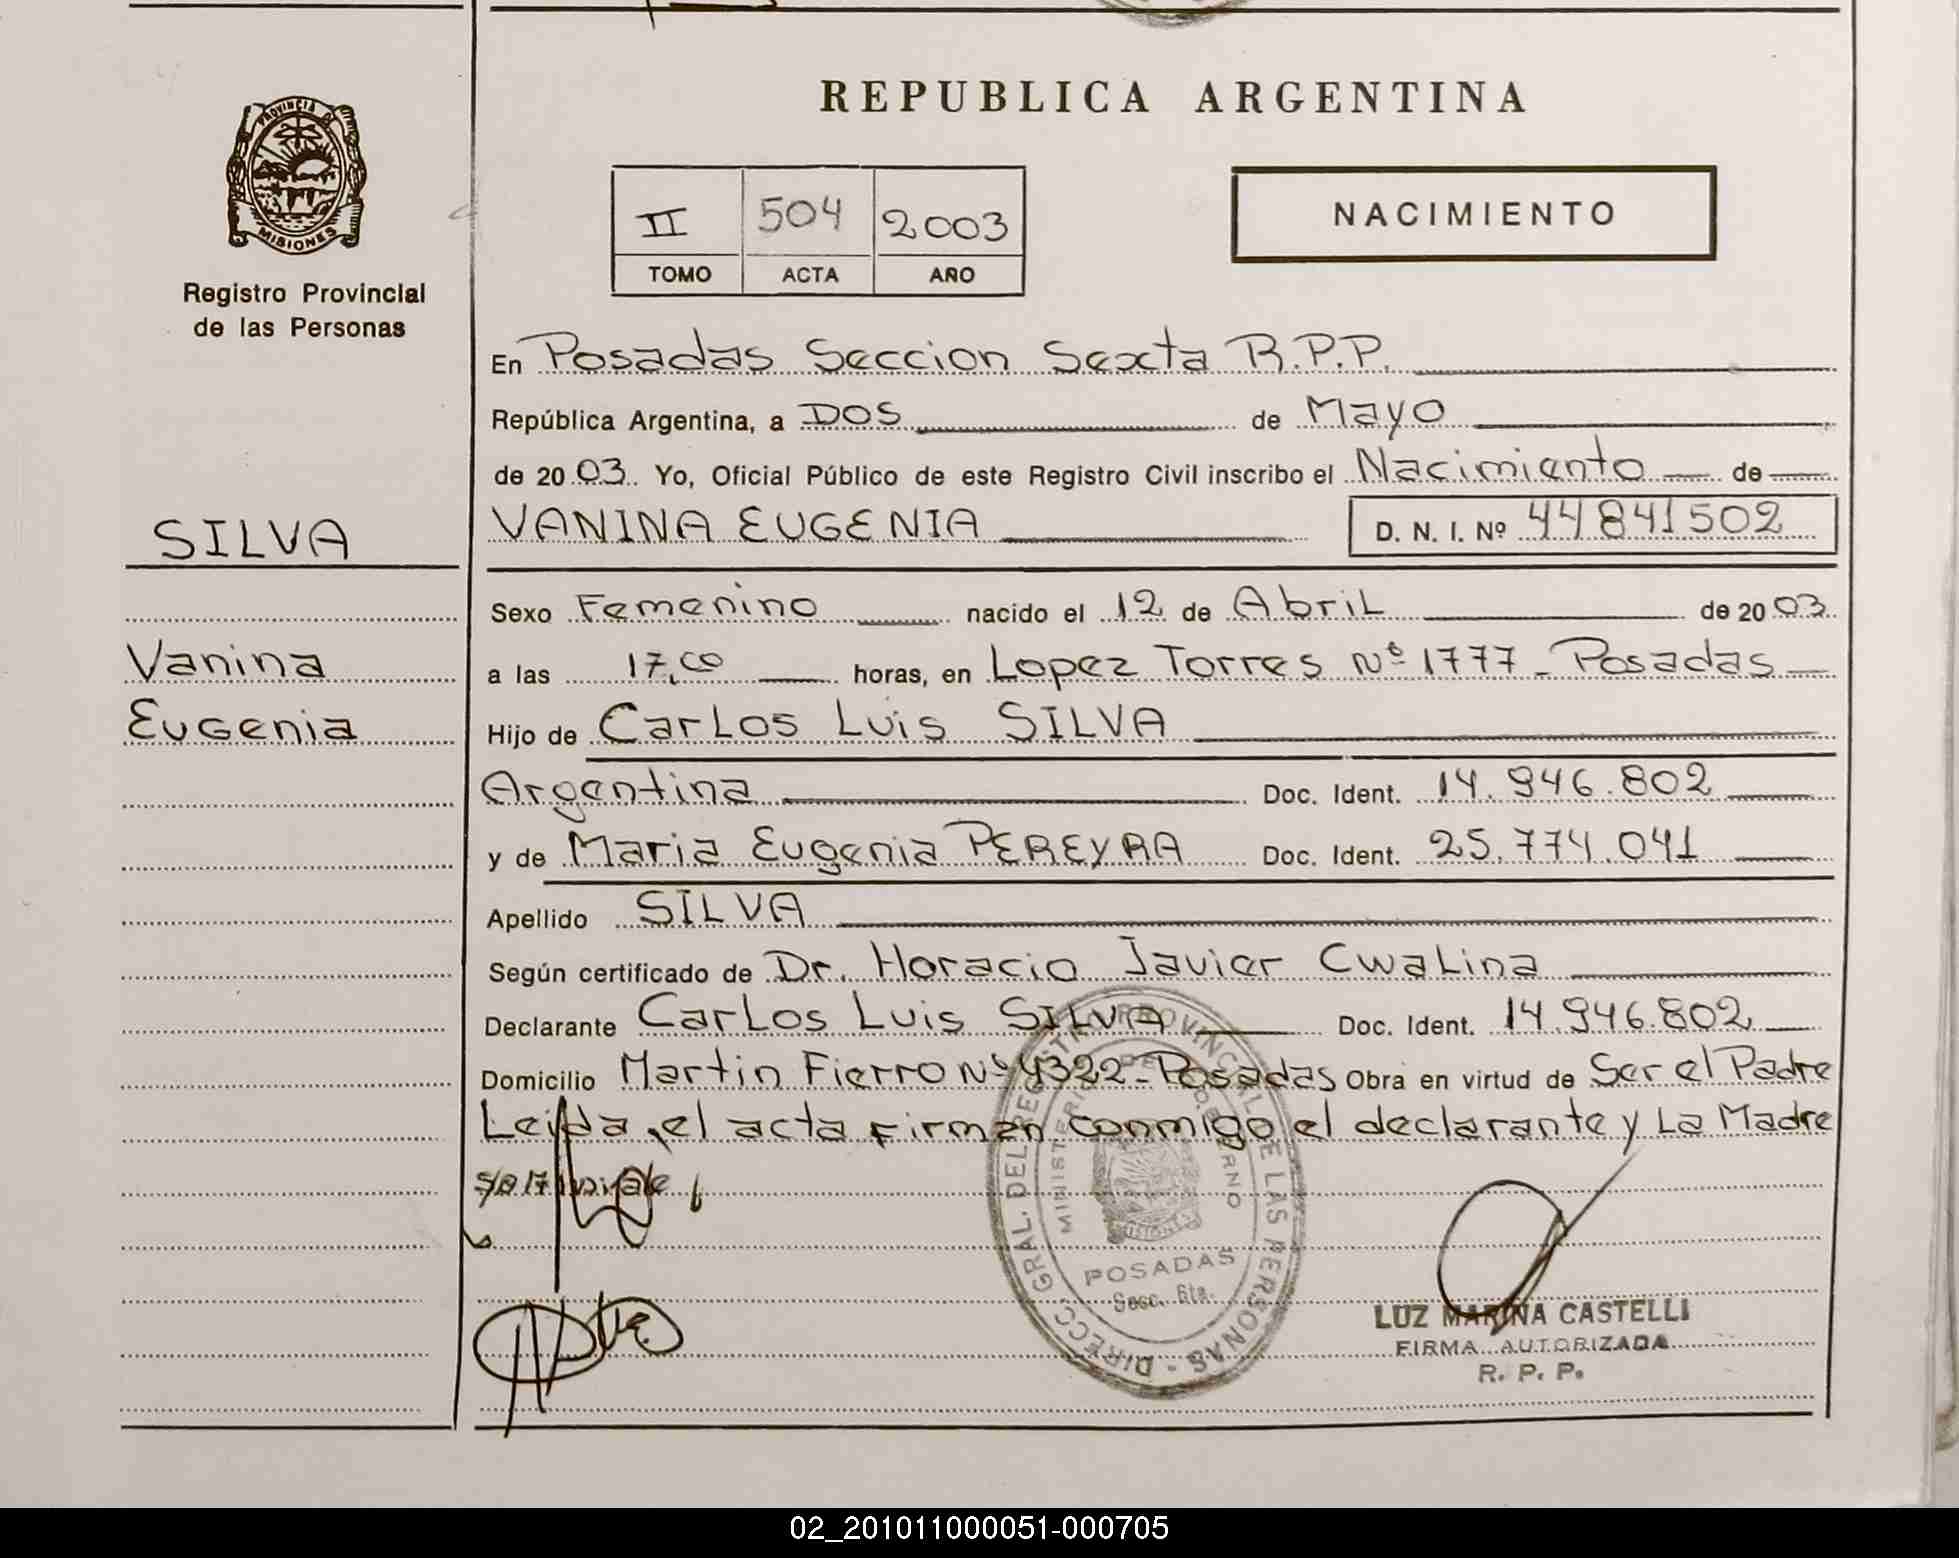 REPUBLICA ARGENTINA
PROVINCIA DE
MISIONES
Registro Provincial
de las Personas
II 504 2003
TOMO ACTA AÑO
NACIMIENTO
En Posadas Seccion Sexta R.P.P.
República Argentina, a DOS de Mayo
de 2003. Yo, Oficial Público de este Registro Civil inscribo el Nacimiento de
SILVA
VANINA EUGENIA D. N. I. Nº 44841502
Sexo Femenino nacido el 12 de Abril de 2003
Vanina
a las 17,00 horas, en Lopez Torres Nº 1777 - Posadas
Eugenia
Hijo de Carlos Luis SILVA
Argentina Doc. Ident. 14.946.802
y de Maria Eugenia PEREYRA Doc. Ident. 25.774.041
Apellido SILVA
Según certificado de Dr. Horacio Javier Cwalina
Declarante Carlos Luis SILVA Doc. Ident. 14.946.802
Domicilio Martin Fierro Nº 4322 - Posadas Obra en virtud de Ser el Padre
Leida el acta firman conmigo el declarante y La Madre
DIRECC. GRAL. DEL REGISTRO PROVINCIAL DE LAS PERSONAS -
MINISTERIO DE GOBIERNO
MISIONES
POSADAS
Secc. 6ta.
LUZ MARINA CASTELLI
FIRMA AUTORIZADA
R. P. P.
02_201011000051-000705